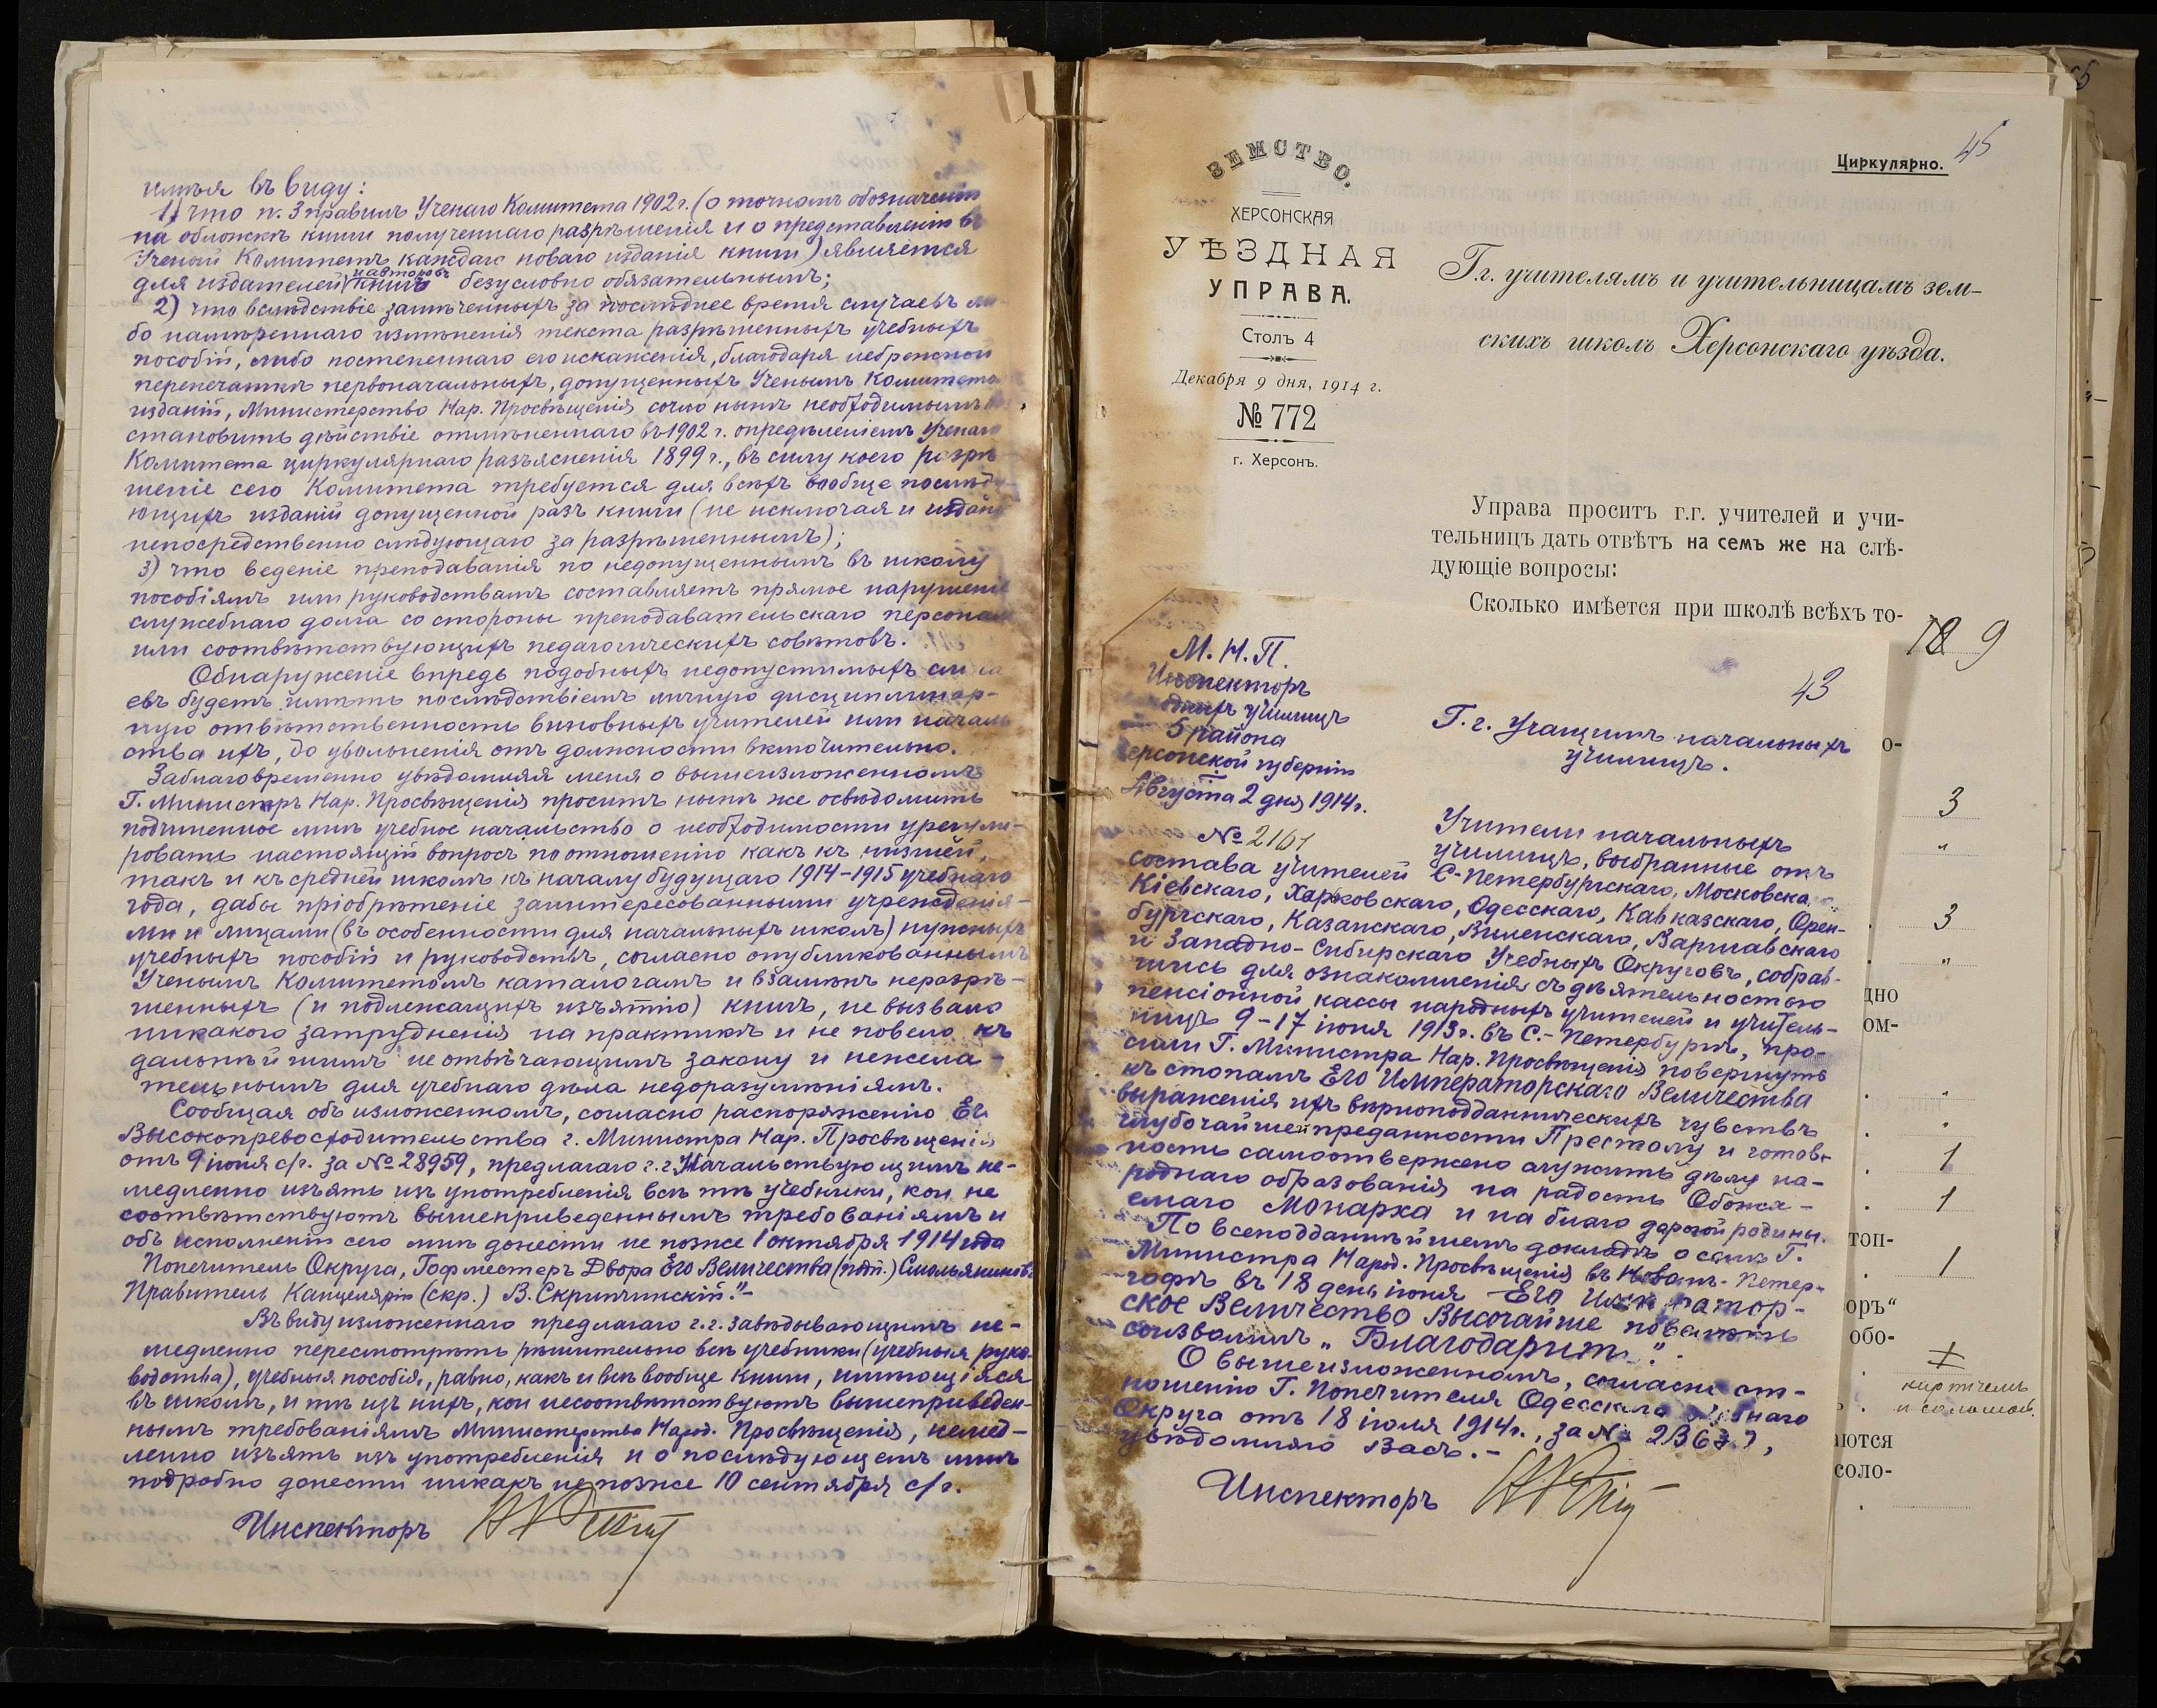 имѣя въ виду:
1) что п. 3 правилъ Ученаго Комитета 1902 г. (о точномъ обозначеніи
на обложкѣ книги полученнаго разрѣшенія и о представленіи въ
Ученый Комитетъ каждаго новаго изданія книги) является
для издателей и авторовъ безусловно обязательнымъ;
2) что вслѣдствіе замѣченныхъ за послѣднее время случаевъ ли-
бо намѣреннаго измѣненія текста разрѣшенныхъ учебныхъ
пособій, либо постепеннаго его искаженія, благодаря небрежной
перепечаткѣ первоначальныхъ, допущенныхъ Ученымъ Комитетомъ
изданій, Министерство Нар. Просвѣщенія сочло нынѣ необходимымъ воз-
становить дѣйствіе отмѣненнаго въ 1902 г. опредѣленіемъ Ученаго
Комитета циркулярнаго разъясненія 1899 г., въ силу коего разрѣ-
шеніе сего Комитета требуется для всѣхъ вообще послѣду-
ющихъ изданій допущенной разъ книги (не исключая и изданія
непосредственно слѣдующаго за разрѣшеннымъ);
3) что веденіе преподаванія по недопущеннымъ въ школу
пособіямъ или руководствамъ составляетъ прямое нарушеніе
служебнаго долга со стороны преподавательскаго персонала
или соотвѣтствующихъ педагогическихъ совѣтовъ.
Обнаруженіе впредь подобныхъ недопустимыхъ случа
евъ будетъ имѣть послѣдствіемъ личную дисциплинар-
ную отвѣтственность виновныхъ учителей или началь
ства ихъ, до увольненія отъ должности включительно.
Заблаговременно увѣдомляя меня о вышеизложенномъ
Г. Министръ Нар. Просвѣщенія проситъ нынѣ же освѣдомить
подчиненное мнѣ учебное начальство о необходимости урегули-
ровать настоящій вопросъ по отношенію какъ къ низшей,
такъ и къ средней школѣ къ началу будущаго 1914-1915 учебнаго
года, дабы пріобрѣтеніе заинтересованными учрежденія-
ми и лицами (въ особенности для начальныхъ школъ) нужныхъ
учебныхъ пособій и руководствъ, согласно опубликованнымъ
Ученымъ Комитетомъ каталогамъ и взамѣнъ неразрѣ-
шенныхъ (и подлежащихъ изъятію) книгъ, не вызвало
никакого затрудненія на практикѣ и не повело къ
дальнѣйшимъ не отвѣчающимъ закону и нежела-
тельнымъ для учебнаго дѣла недоразумѣніямъ.
Сообщая объ изложенномъ, согласно распоряженію Его
Высокопревосходительства г. Министра Нар. Просвѣщенія
отъ 9 іюня с/г. за № 28959, предлагаю г.г. Начальствующимъ не-
медленно изъять изъ употребленія всѣ тѣ учебники, кои не
соотвѣтствуютъ вышеприведеннымъ требованіямъ и
объ исполненіи сего мнѣ донести не позже 1 октября 1914 года
Попечитель Округа, Гофмейстеръ Двора Его Величества (подп.) Смольяниновъ
Правитель Канцеляріи (скр.) В. Скрипчинскій."-
Въ виду изложеннаго предлагаю г.г. завѣдывающимъ не-
медленно пересмотрѣть рѣшительно всѣ учебники (учебныя руко-
водства), учебныя пособія, равно, какъ и всѣ вообще книги, имѣющіяся
въ школѣ, и тѣ изъ нихъ, кои несоотвѣтствуютъ вышеприведен-
нымъ требованіямъ Министерства Народ. Просвѣщенія, немед-
ленно изъять изъ употребленія и о послѣдующемъ мнѣ
подробно донести никакъ не позже 10 сентября с/г.
Инспекторъ
ЗЕМСТВО.
ХЕРСОНСКАЯ
УѢЗДНАЯ
УПРАВА.
Столъ 4
Декабря 9 дня, 1914 г.
№ 772
г. Херсонъ.
Циркулярно.
45
Г.г. учителямъ и учительницамъ зем-
скихъ школъ Херсонскаго уѣзда.
Управа проситъ г.г. учителей и учи-
тельницъ дать отвѣтъ на семъ же на слѣ-
дующіе вопросы:
Сколько имѣется при школѣ всѣхъ то-
9
М. Н. П.
Инспекторъ
одныхъ училищъ
5 района
ерсонской губерніи
Августа 2 дня 1914 г.
№ 2161
43
Г.г. Учащимъ начальныхъ
училищъ.
Учители начальныхъ
училищъ, выбранные отъ
состава учителей С-Петербургскаго, Московска
Кіевскаго, Харьковскаго, Одесскаго, Кавказскаго, Орен-
бургскаго, Казанскаго, Виленскаго, Варшавскаго
и Западно-Сибирскаго Учебныхъ Округовъ, собрав-
шись для ознакомленія съ дѣятельностью
пенсіонной кассы народныхъ учителей и учитель-
ницъ 9-17 іюня 1913 г. въ С.-Петербургѣ, про-
сили Г. Министра Нар. Просвѣщенія повергнуть
къ стопамъ Его Императорскаго Величества
выраженія ихъ вѣрноподданническихъ чувствъ
глубочайшей преданности Престолу и готов-
ность самоотвержено служить дѣлу на-
роднаго образованія на радость Обожа-
емаго Монарха и на благо дорогой родины.
По всеподданнѣйшемъ докладѣ о семъ Г.
Министра Народ. Просвѣщенія въ Новомъ-Петер-
гофѣ въ 18 день іюня Его Император-
ское Величество Высочайше повелѣть
соизволилъ „Благодарить".
О вышеизложенномъ, согласно от-
ношенію Г. Попечителя Одесскаго Учебнаго
Округа отъ 18 іюля 1914 г., за №
увѣдомляю Васъ.-
Инспекторъ
о-
3
"
3
"
дно
ом-
"
"
1
1
топ-
1
оръ"
обо-
кирпичемъ
и соломой.
ются
соло-